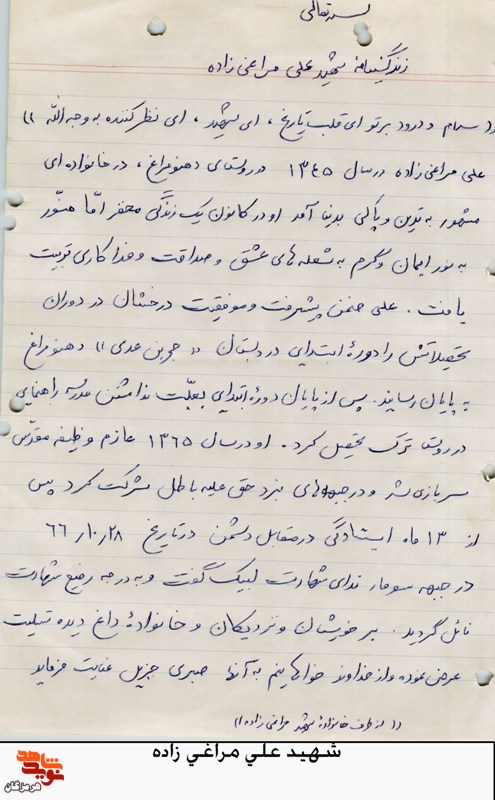 بسمه تعالی
زندگینامه شهید علی مراغی زاده
(( سلام و درود بر تو ای قلب تاریخ ، ای شهید ، ای نظر کننده به وجه الله ))
علی مراغی زاده در سال ۱۳۴۵ در روستای دهنو مراغ ، در خانواده ای
مشهور به تدین و پاکی بدنیا آمد او در کانون یک زندگی محقر امّا منّور
به نور ایمان و گرم به شعله های عشق و صداقت و فداکاری تربیت
یافت . علی ضمن پیشرفت و موفقیت درخشان در دوران
تحصیلاتش را دورهٔ ابتدای در دبستان (( حجر بن عدی )) دهنو مراغ
به پایان رسانید . پس از پایان دورهٔ ابتدای بعلّت نداشتن مدرسه راهنمای
در روستا ترک تحصیل کرد . او در سال ۱۳۶۵ عازم وظیفه مقدّس
سربازی شد و در جبهه های نبرد حق علیه باطل شرکت کرد پس
از ۱۳ ماه ایستادگی در مقابل دشمن در تاریخ ۶۶/۱۰/۲۸
در جبهه سومار ندای شهادت لبیک گفت و به درجه رفیع شهادت
نائل گردید . بر خویشان و نزدیکان و خانوادهٔ داغ دیده تسلیت
عرض نموده و از خداوند خواهانیم به آنها صبری جزیل عنایت فرماید
(( از طرف خانوادهٔ شهید مراغی زاده ))
شهيد علي مراغي زاده
نوید شاهد
هرمزگان